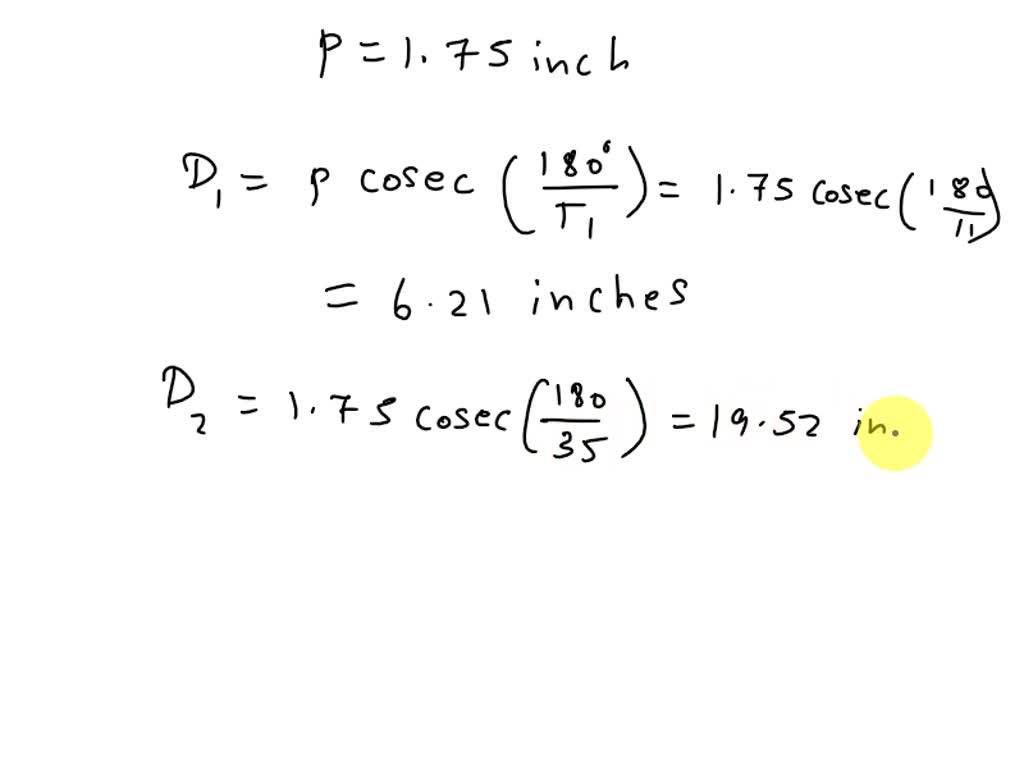 p = 1.75 inch
D₁ = p cosec (180°/T₁) = 1.75 cosec (180/11)
= 6.21 inches
D₂ = 1.75 cosec (180/35) = 19.52 in.